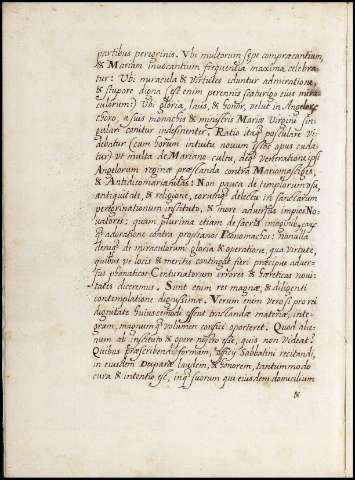 partibus peregrinis. Vbi multorum sępe compręcantium,
& Mariam inuocantium frequentia maxima celebra-
tur: Vbi miracula & Virtutes eduntur admiratione,
& stupore digna (est enim perennis scaturigo eius mira-
culorum:) Vbi gloria, laus, & honor, velut in Angelor.
choro, a suis monachis & ministris Mariæ Virgini sin-
gulari canitur indesinenter. Ratio itaq. postulare vi-
debatur (cum horum intuitu nouum istoc opus cuda-
tur) vt multa de Mariano cultu, deq. veneratione ipsi
Angelorum reginæ præstanda contra Mariomastiges,
& Antidicomarianitas: Non pauca de templorum usu,
antiquitate, & religione, eorumq. delectu in sanctarum
peregrinationum instituto, & more aduersus impios No-
uatores: quam plurima etiam de sacris imaginib.
adoratione contra prophanos Iconomachos: nonnulla
deniq. de miraculorum gloria & operatione, qua virtute,
quibus ve locis & meritis contingat fieri præcipue aduer-
sus phanaticos Centuriatorum errores & hæreticas noui-
tates diceremus. Sunt enim res magnæ, & diligenti
contemplatione dignissimæ. Verum enim vero si pro rei
dignitate huiuscemodi essent tractandæ materiæ, inte-
grum, magnumq. volumen confici oporteret. Quod alie-
num ab instituto & opere nostro esse, quis non videat?
Quibus præscribendi formam, officij Sabbatini recitandi,
in eiusdem Deiparæ laudem, & honorem, tantummodo
cura & intentio est, inq. suorum qui eiusdem domicilium
&